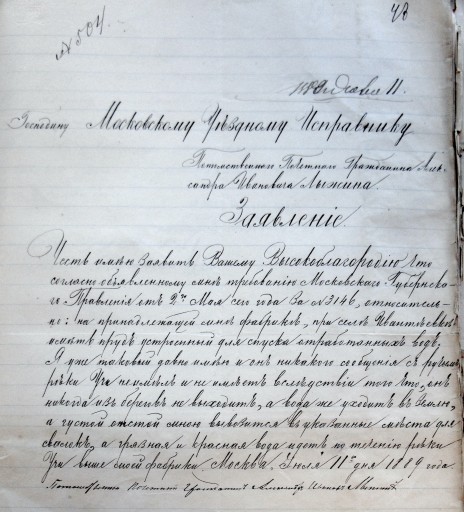 № 504.
48
11.
Господину Московскому Уѣздному Исправнику
Потомственного Почетного Гражданина Алек-
сандра Ивановича Лыжина
Заявленіе.
Честь имѣю заявить Вашему Высокоблагородію что
согласно объявленному мнѣ требованію Московского Губернска-
го Правленія отъ 2го Мая сего года за №3146, относитель-
но: на принадлежащей мнѣ фабрикѣ, при селѣ
имѣть прудъ устроенный для спуска отработанныхъ водъ,
Я уже таковый давно имѣю и онъ никакого сообщенія съ русломъ
рѣки Учи не имѣлъ и не имѣетъ вслѣдствіи того что, онъ
никогда изъ береговъ не выходитъ, а вода же уходитъ въ Землю,
а густой отстой мною вывозится въ указанные мѣста для
свалокъ, а грязная и красная вода идетъ по теченію рѣки
Учи выше моей фабрики Москва. Іюля 11го дня 1889 года.
Потомственный Почетный Гражданинъ Александръ Ивановъ Лыжинъ